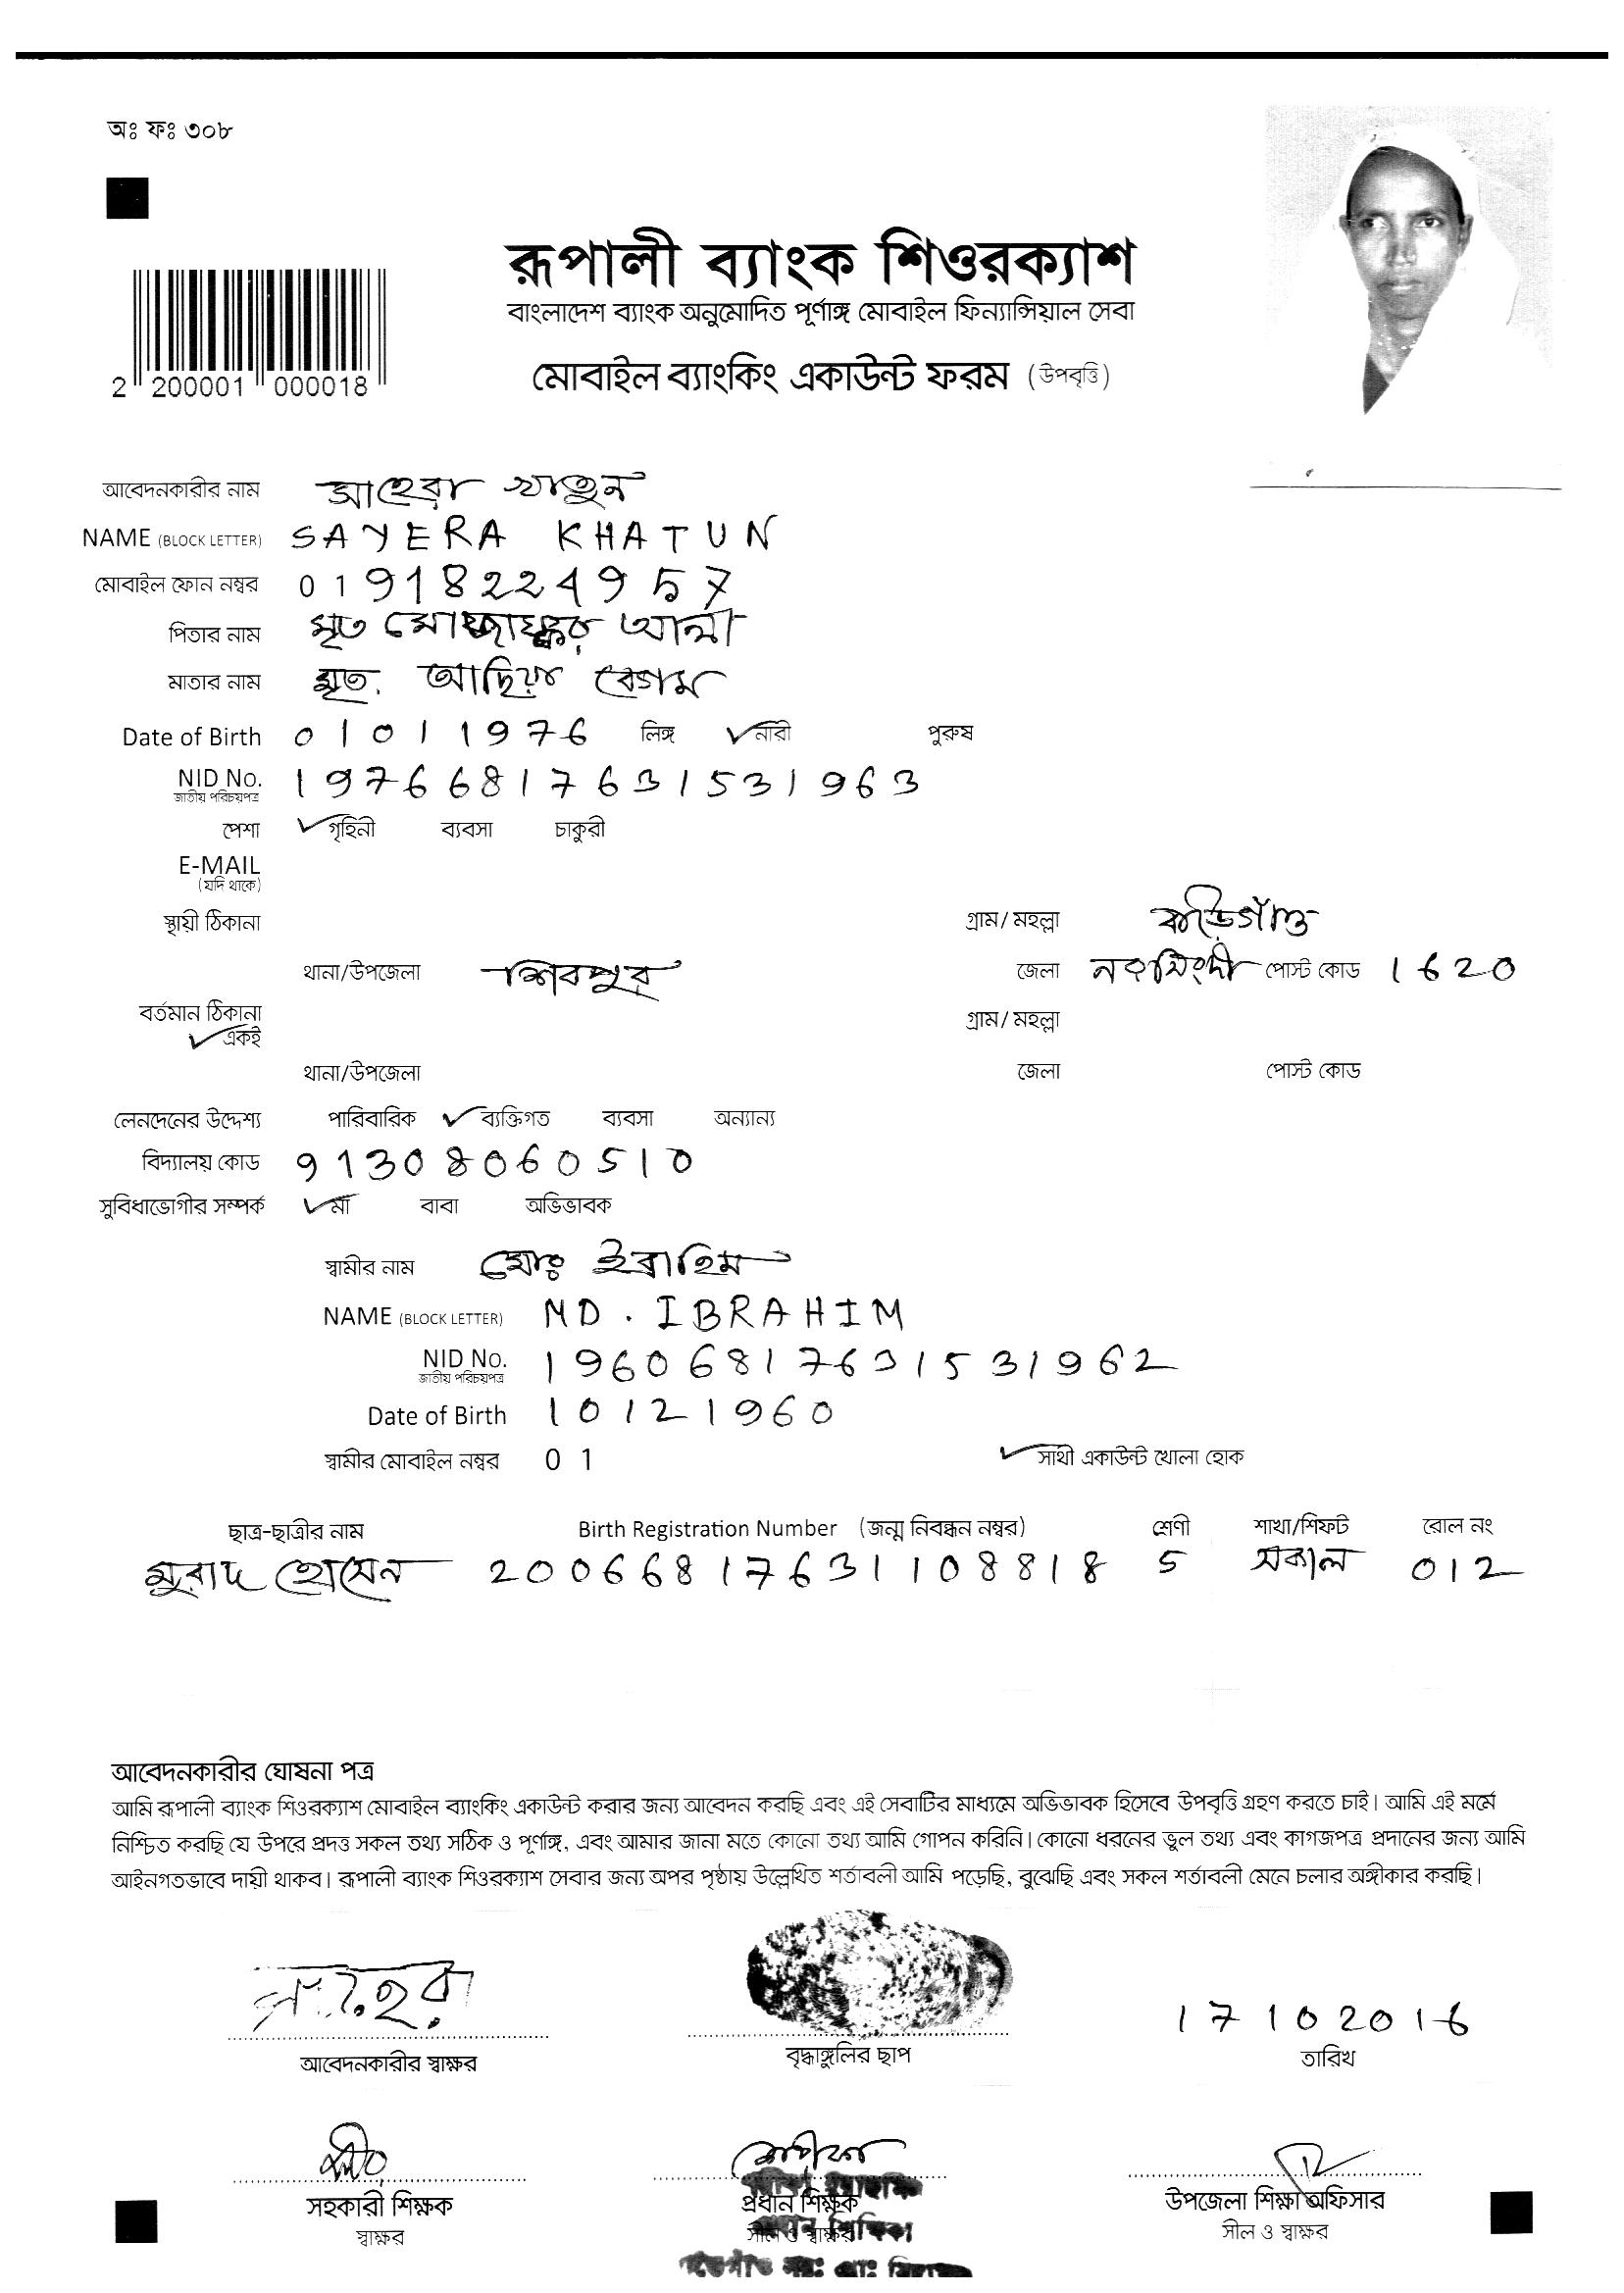 অঃ ফঃ ৩০৮
রূপালী ব্যাংক শিওরক্যাশ
বাংলাদেশ ব্যাংক অনুমোদিত পূর্ণাঙ্গ মোবাইল ফিন্যান্সিয়াল সেবা
2 200001 000018
মোবাইল ব্যাংকিং একাউন্ট ফরম (উপবৃত্তি)
আবেদনকারীর নাম সাহেরা খাতুন
NAME (BLOCK LETTER) SAYERA KHATUN
মোবাইল ফোন নম্বর 01918224957
পিতার নাম মৃত আলী
মাতার নাম মৃত. আছিয়া বেগম
Date of Birth 01011976 লিঙ্গ নারী পুরুষ
NID No. 19766817631531963
জাতীয় পরিচয়পত্র
পেশা গৃহিনী ব্যবসা চাকুরী
E-MAIL
(যদি থাকে)
স্থায়ী ঠিকানা গ্রাম/ মহল্লা
থানা/উপজেলা শিবপুর জেলা নরসিংদী পোস্ট কোড 1620
বর্তমান ঠিকানা গ্রাম/ মহল্লা
একই
থানা/উপজেলা জেলা পোস্ট কোড
লেনদেনের উদ্দেশ্য পারিবারিক ব্যক্তিগত ব্যবসা অন্যান্য
বিদ্যালয় কোড 91308060510
সুবিধাভোগীর সম্পর্ক মা বাবা অভিভাবক
স্বামীর নাম মোঃ ইব্রাহিম
NAME (BLOCK LETTER) MD. IBRAHIM
NID No. 19606817631531962
জাতীয় পরিচয়পত্র
Date of Birth 10121960
স্বামীর মোবাইল নম্বর 01 সাথী একাউন্ট খোলা হোক
ছাত্র-ছাত্রীর নাম Birth Registration Number (জন্ম নিবন্ধন নম্বর) শ্রেণী শাখা/শিফট রোল নং
মুরাদ হোসেন 20066817631108818 5 সকাল 012
আবেদনকারীর ঘোষনা পত্র
আমি রূপালী ব্যাংক শিওরক্যাশ মোবাইল ব্যাংকিং একাউন্ট করার জন্য আবেদন করছি এবং এই সেবাটির মাধ্যমে অভিভাবক হিসেবে উপবৃত্তি গ্রহণ করতে চাই। আমি এই মর্মে
নিশ্চিত করছি যে উপরে প্রদত্ত সকল তথ্য সঠিক ও পূর্ণাঙ্গ, এবং আমার জানা মতে কোনো তথ্য আমি গোপন করিনি। কোনো ধরনের ভুল তথ্য এবং কাগজপত্র প্রদানের জন্য আমি
আইনগতভাবে দায়ী থাকব। রূপালী ব্যাংক শিওরক্যাশ সেবার জন্য অপর পৃষ্ঠায় উল্লেখিত শর্তাবলী আমি পড়েছি, বুঝেছি এবং সকল শর্তাবলী মেনে চলার অঙ্গীকার করছি।
17102016
আবেদনকারীর স্বাক্ষর বৃদ্ধাঙ্গুলির ছাপ তারিখ
সহকারী শিক্ষক প্রধান শিক্ষক উপজেলা শিক্ষা অফিসার
স্বাক্ষর সীল ও স্বাক্ষর সীল ও স্বাক্ষর